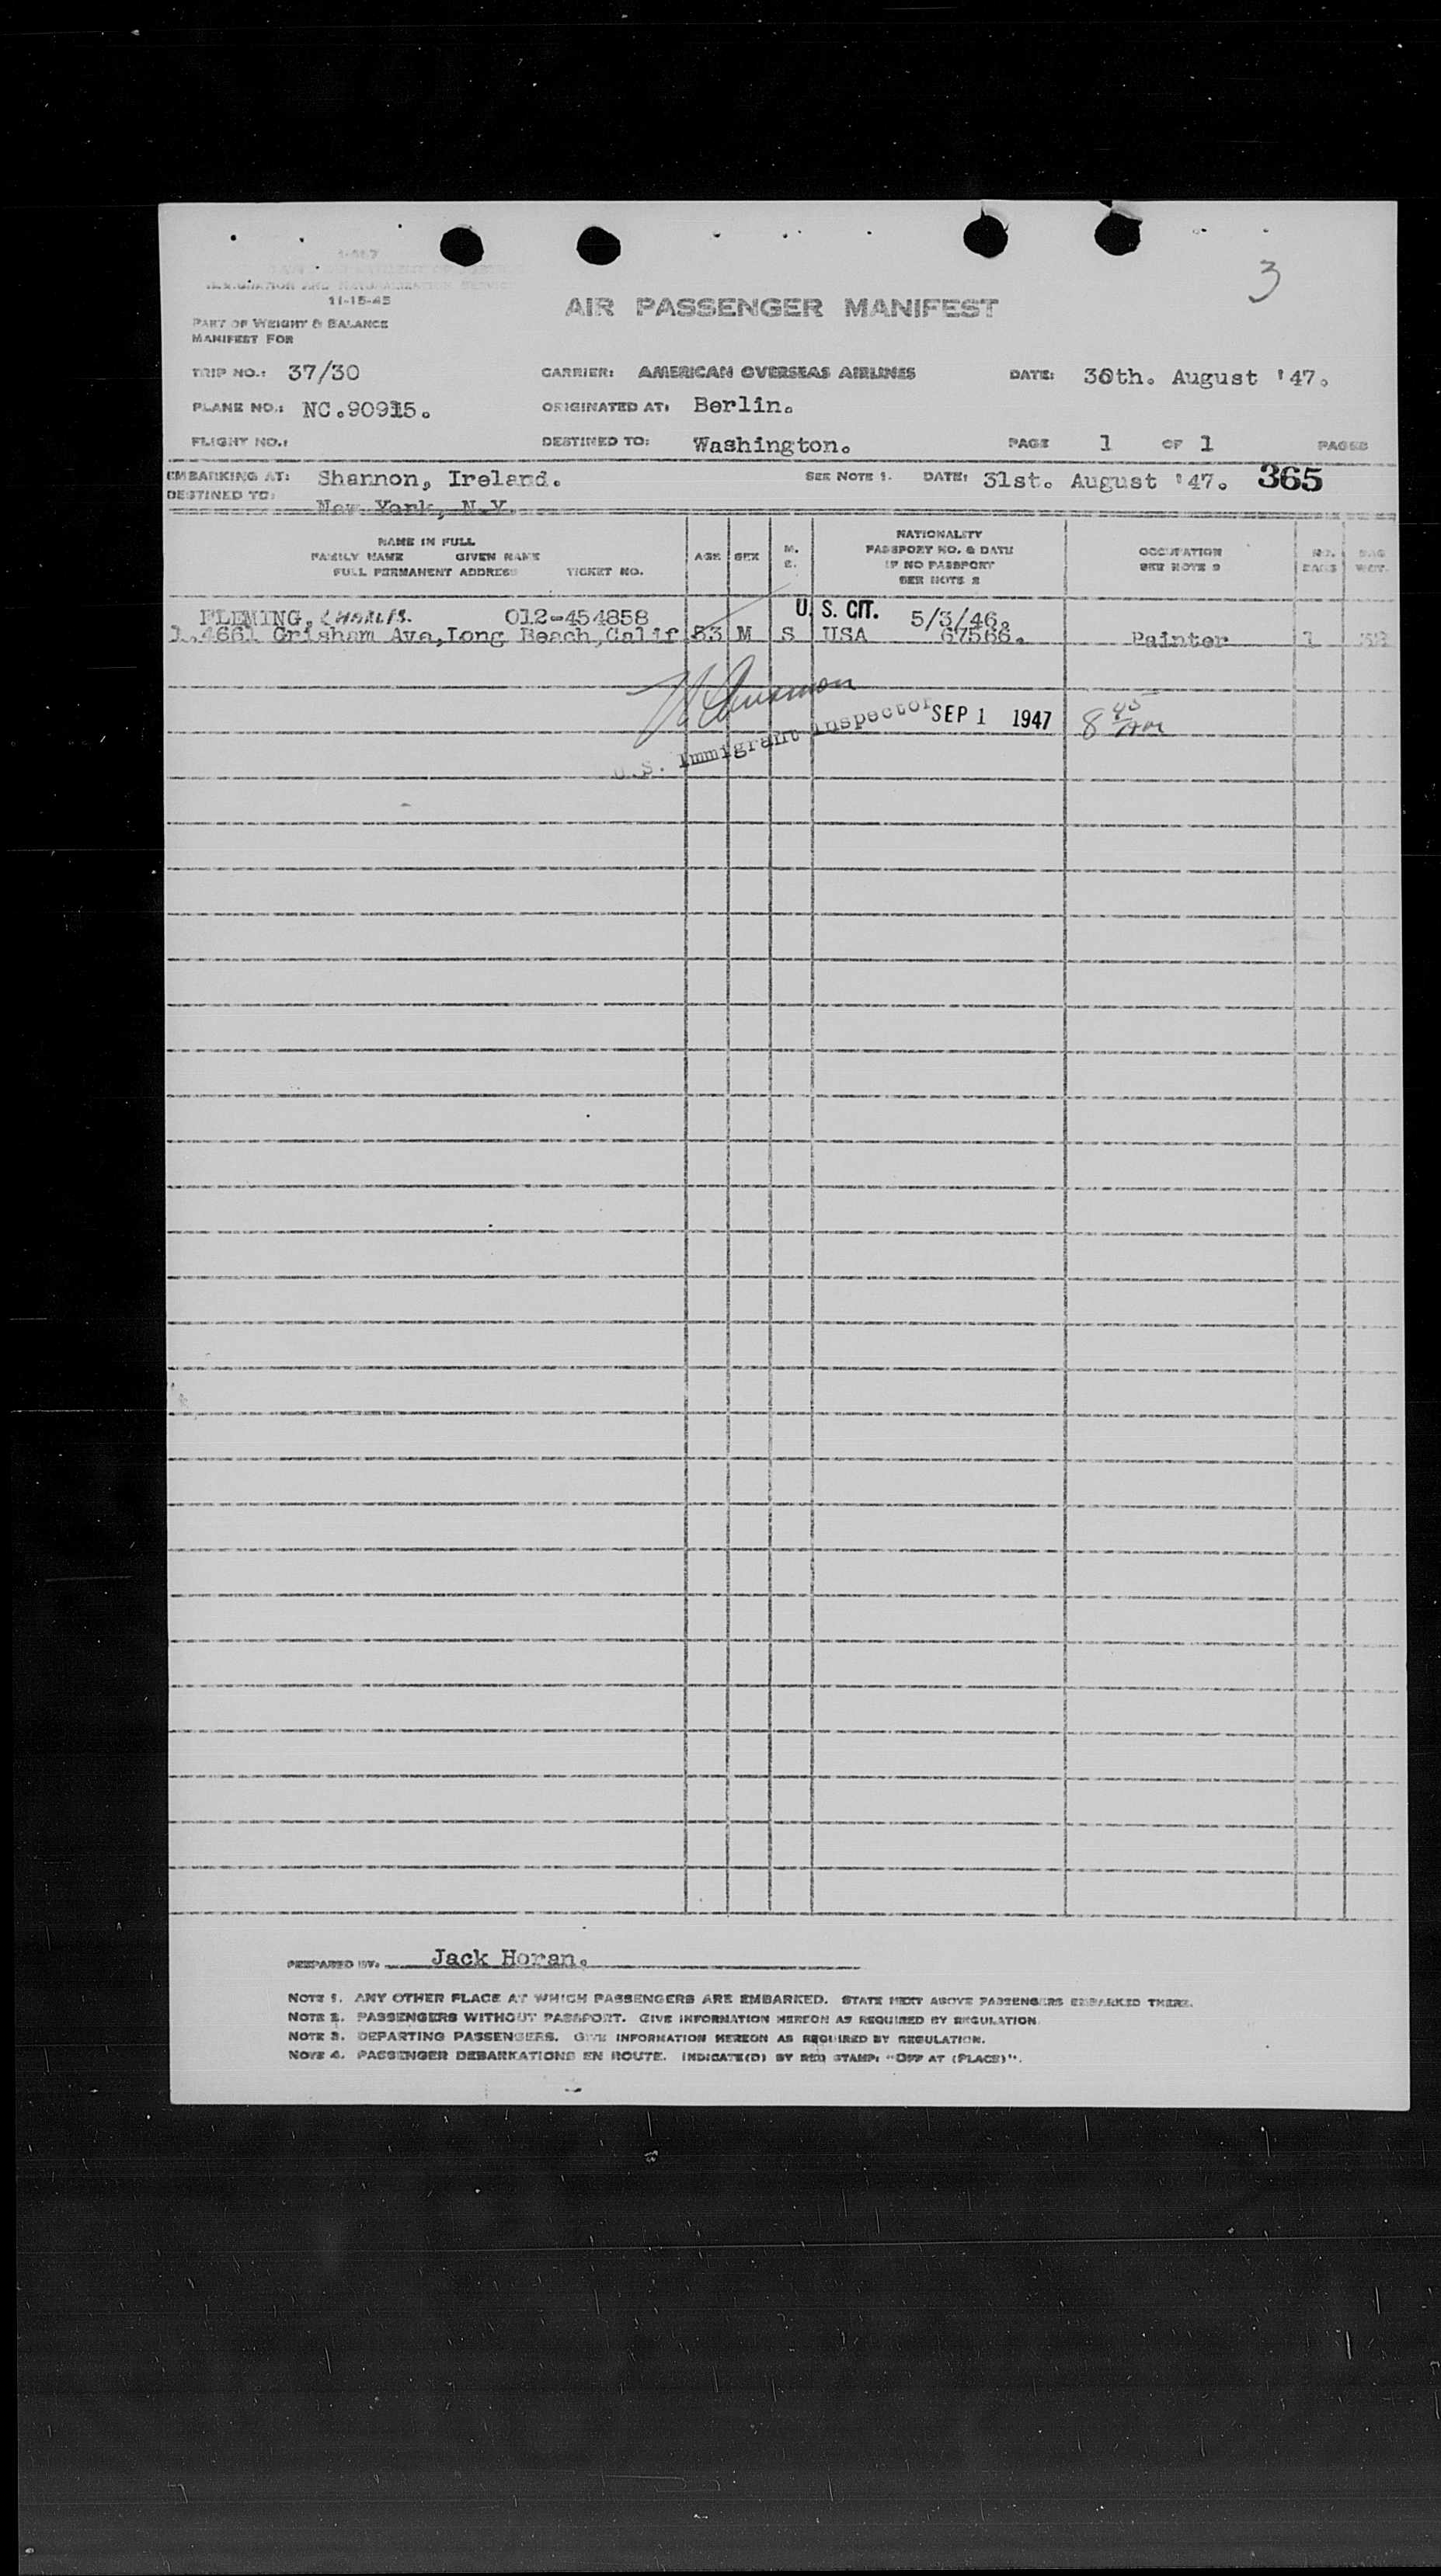 I-467
IMMIGRATION AND NATURALIZATION SERVICE
11-15-45
3
AIR PASSENGER MANIFEST
PART OF WEIGHT & BALANCE
MANIFEST FOR
TRIP NO.: 37/30 CARRIER: AMERICAN OVERSEAS AIRLINES DATE: 30th. August '47.
PLANE NO.: NC.90915. ORIGINATED AT: Berlin.
FLIGHT NO.: DESTINED TO: Washington. PAGE 1 OF 1 PAGES
EMBARKING AT: Shannon, Ireland. SEE NOTE 1. DATE: 31st. August '47. 365
DESTINED TO: New York, N.Y.
NAME IN FULL
FAMILY NAME GIVEN NAME
FULL PERMANENT ADDRESS TICKET NO.
AGE SEX M. S.
NATIONALITY
PASSPORT NO. & DATE
IF NO PASSPORT
SEE NOTE 2
OCCUPATION
SEE NOTE 3
NO. BAGS
BAG WGT.
FLEMING, CHARLES. 012-454858 U. S. CIT. 5/3/46.
1.4661 Grisham Ave,Long Beach,Calif 53 M S USA 67566. Painter 1
SEP 1 1947 8 45 AM
U.S. Immigrant Inspector
PREPARED BY: Jack Horan.
NOTE 1. ANY OTHER PLACE AT WHICH PASSENGERS ARE EMBARKED. STATE NEXT ABOVE PASSENGERS EMBARKED THERE.
NOTE 2. PASSENGERS WITHOUT PASSPORT. GIVE INFORMATION HEREON AS REQUIRED BY REGULATION.
NOTE 3. DEPARTING PASSENGERS. GIVE INFORMATION HEREON AS REQUIRED BY REGULATION.
NOTE 4. PASSENGER DEBARKATIONS EN ROUTE. INDICATE(D) BY RED STAMP: "OFF AT (PLACE)".